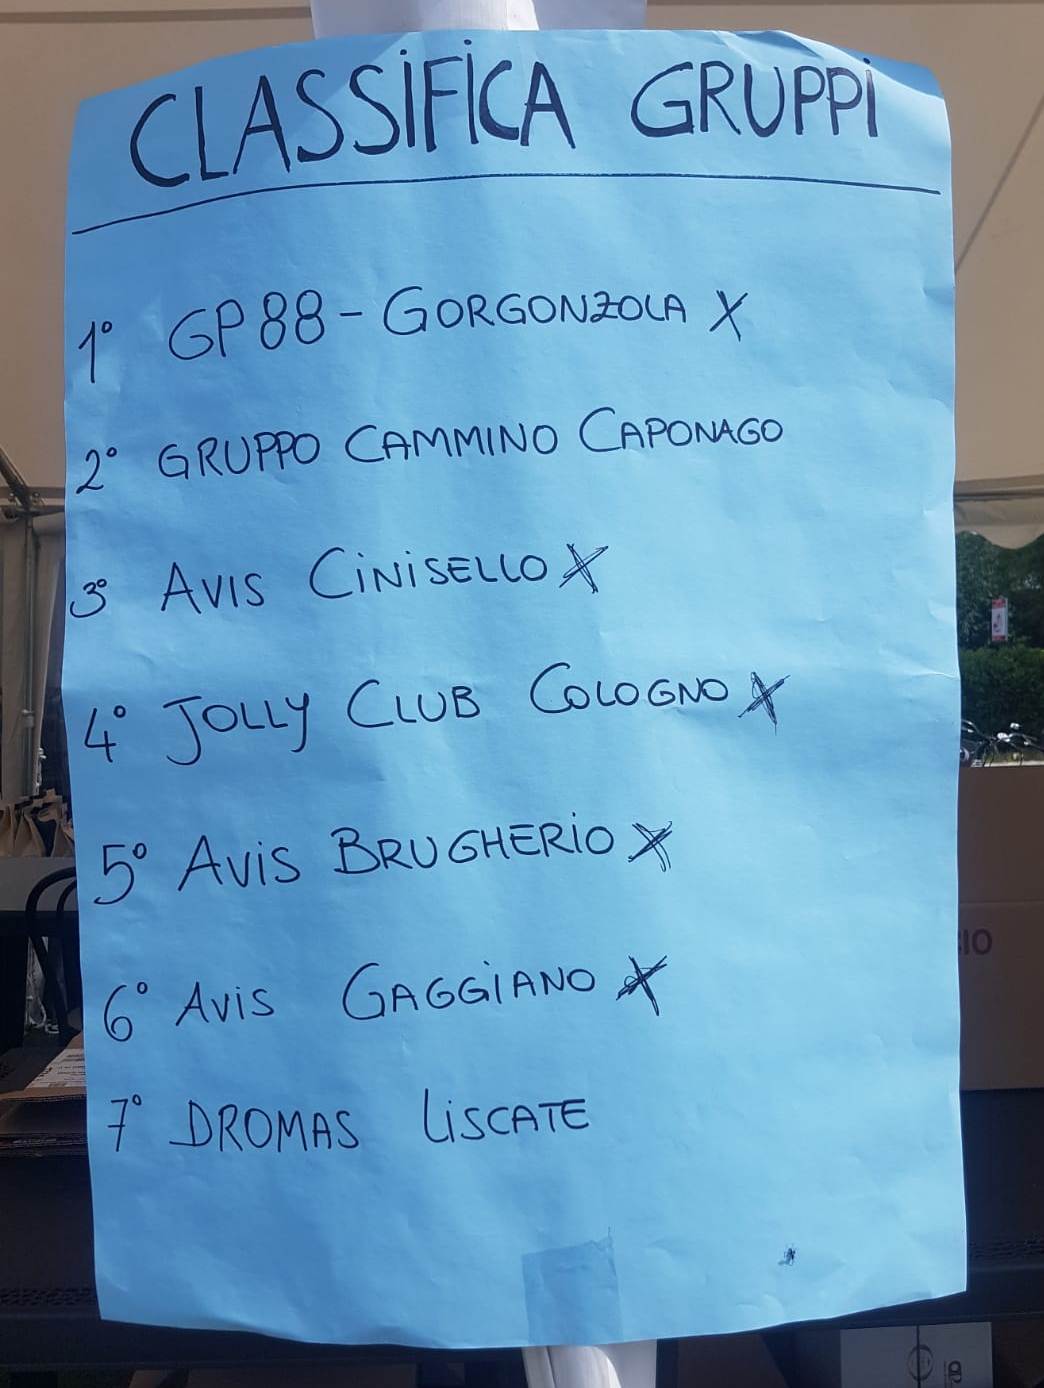 CLASSIFICA GRUPPI
1° GP88 - GORGONZOLA X
2° GRUPPO CAMMINO CAPONAGO
3° AVIS CINISELLO X
4° JOLLY CLUB COLOGNO X
5° AVIS BRUGHERIO X
6° AVIS GAGGIANO X
7° DROMAS LISCATE